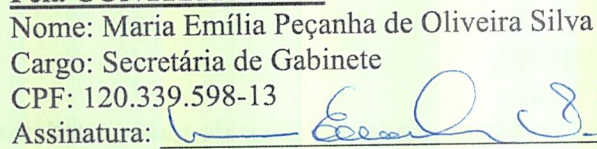 Nome: Maria Emília Peçanha de Oliveira Silva
Cargo: Secretária de Gabinete
CPF: 120.339.598-13
Assinatura: